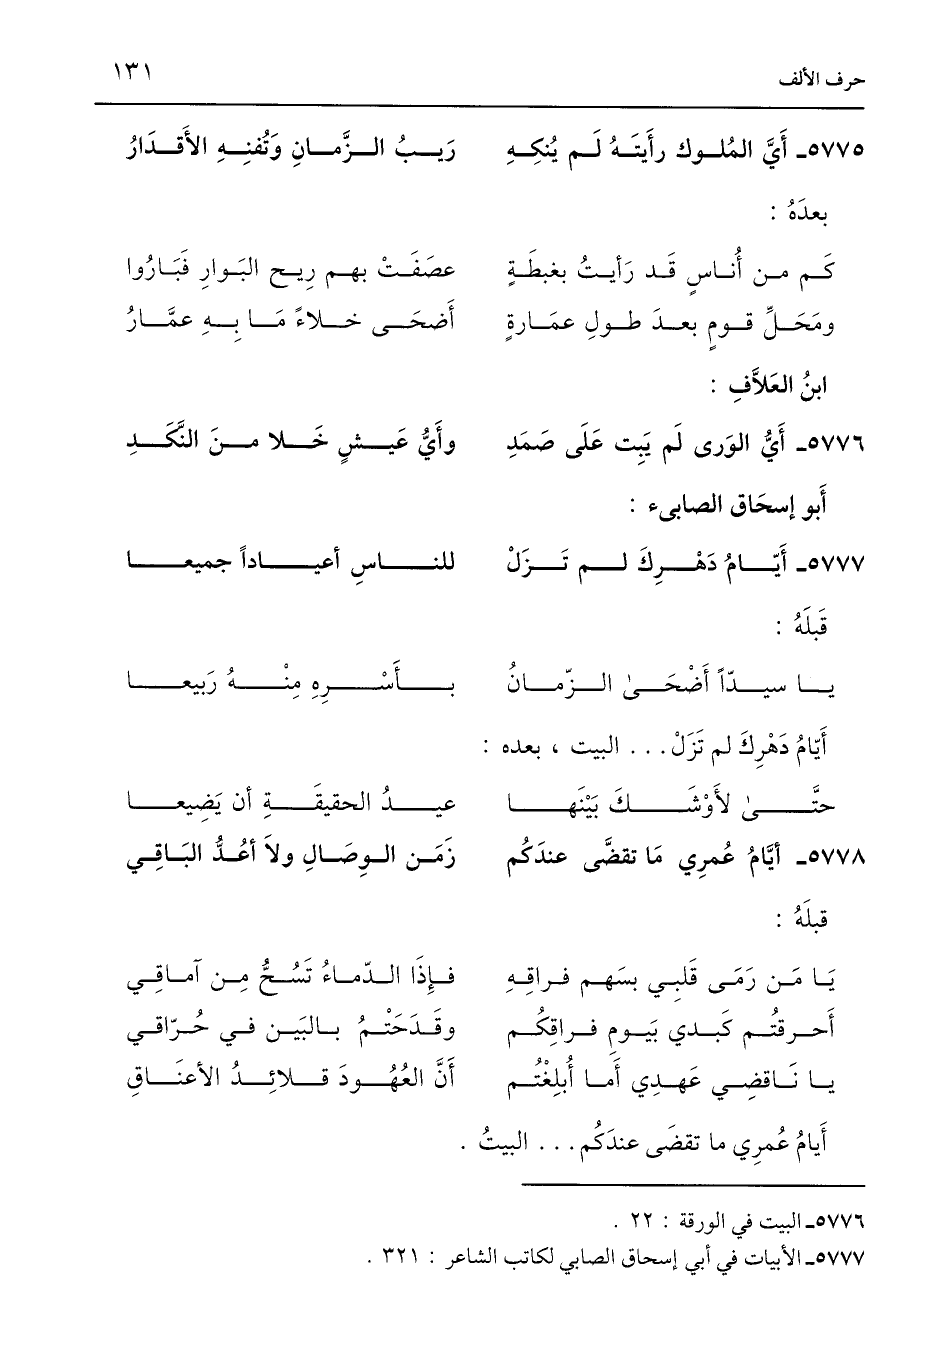 حرف الألف ١٣١
٥٧٧٥ـ أَيَّ المُلوك رأَيتَهُ لَم يُنكِهِ رَيبُ الزَّمانِ وَتُفنِهِ الأَقدَارُ
بعدَهُ :
كَم من أُناسٍ قَد رَأيتُ بغبطَةٍ عصَفَتْ بهم ريح البَوارِ فَبَارُوا
ومَحَلِّ قومٍ بعدَ طولِ عمَارةٍ أَضحَى خلاءً مَا بِهِ عمَّارُ
ابنُ العَلاَّفِ :
٥٧٧٦ـ أَيُّ الوَرى لَم يَبِت عَلَى صَمَدِ وأَيُّ عَيشٍ خَلا منَ النَّكَدِ
أَبو إسحَاق الصابىء :
٥٧٧٧ـ أَيّامُ دَهْرِكَ لم تَزَلْ للناسِ أعياداً جميعا
قَبلَهُ :
يا سيدّاً أَضْحَىٰ الزّمانُ بأَسْرِهِ مِنْهُ رَبيعا
أَيّامُ دَهْرِكَ لم تَزَلْ . . . البيت ، بعده :
حتَّىٰ لأَوْشَكَ بَيْنَها عيدُ الحقيقَةِ أن يَضِيعا
٥٧٧٨ـ أَيَّامُ عُمرِي مَا تقضَّى عندَكُم زَمَن الوِصَالِ ولاَ أَعُدُّ البَاقِي
قبلَهُ :
يَا مَن رَمَى قَلبِي بسَهمِ فراقِهِ فَإذَا الدّماءُ تَسُحُّ مِن آماقِي
أَحرقتُم كَبدي بَيومِ فراقِكُم وقَدَحْتمُ بالبَين في حُرّاقي
يا نَاقضِي عَهدِي أَما أُبلِغْتُم أَنَّ العُهُودَ قلائِدُ الأعنَاقِ
أَيامُ عُمرِي ما تقضَى عندَكُم . . . البيتُ .
٥٧٧٦ـ البيت في الورقة : ٢٢ .
٥٧٧٧ـ الأبيات في أبي إسحاق الصابي لكاتب الشاعر : ٣٢١ .